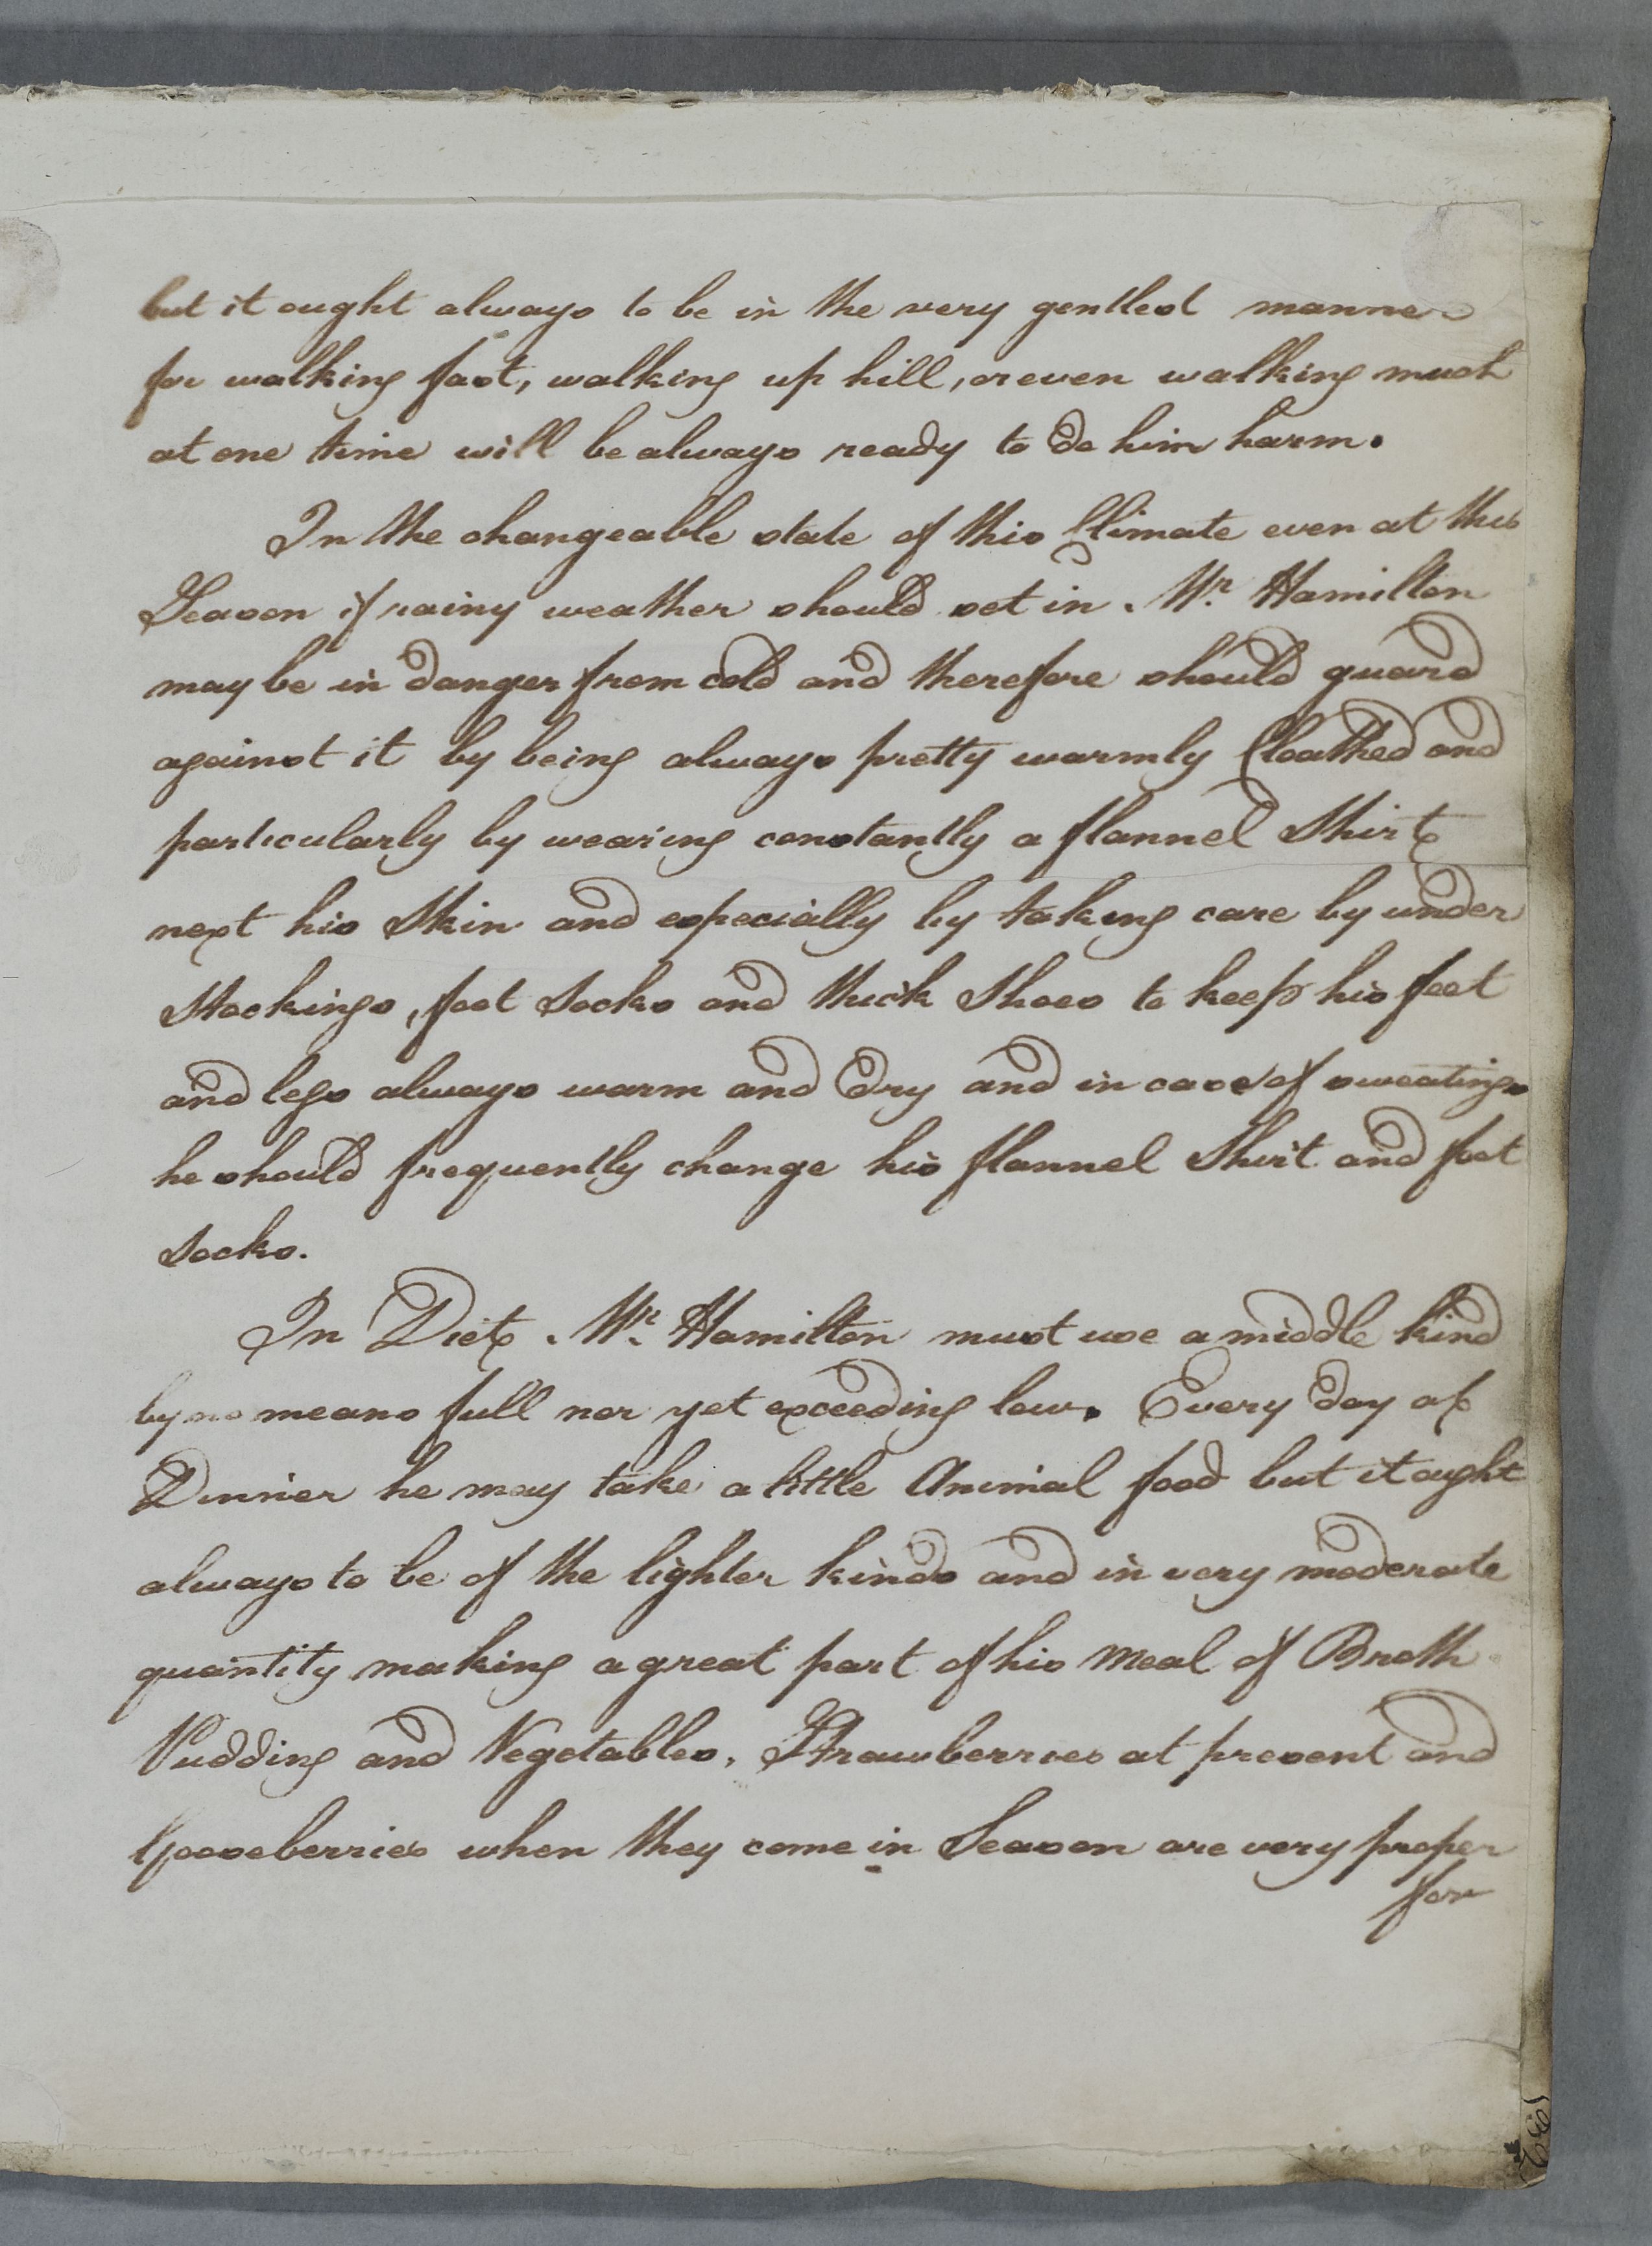 but it ought always to be in the very gentlest manner
for walking fast, walking up hill, or even walking much
at one time will be always ready to do him harm.
In the changeable state of this Climate even at this
Season if rainy weather should set in Mr. Hamilton
may be in danger from cold and therefore should guard
against it by being always pretty warmly Cloathed and
particularly by wearing constantly a flannel Shirt
next his Skin and especially by taking care by under
Stockings, foot Socks and thick Shoes to keep his feet
and legs always warm and dry and in case of sweatings
he should frequently change his flannel Shirt and foot
Socks.
In Diet Mr. Hamilton must use a middle kind
by no means full nor yet exceeding low. Every day at
Dinner he may take a little Animal food but it ought
always to be of the lighter kinds and in very moderate
quantity making a great part of his Meal of Broth
Pudding and Vegetables. Strawberries at present and
Gooseberries when they come in Season are very proper
for